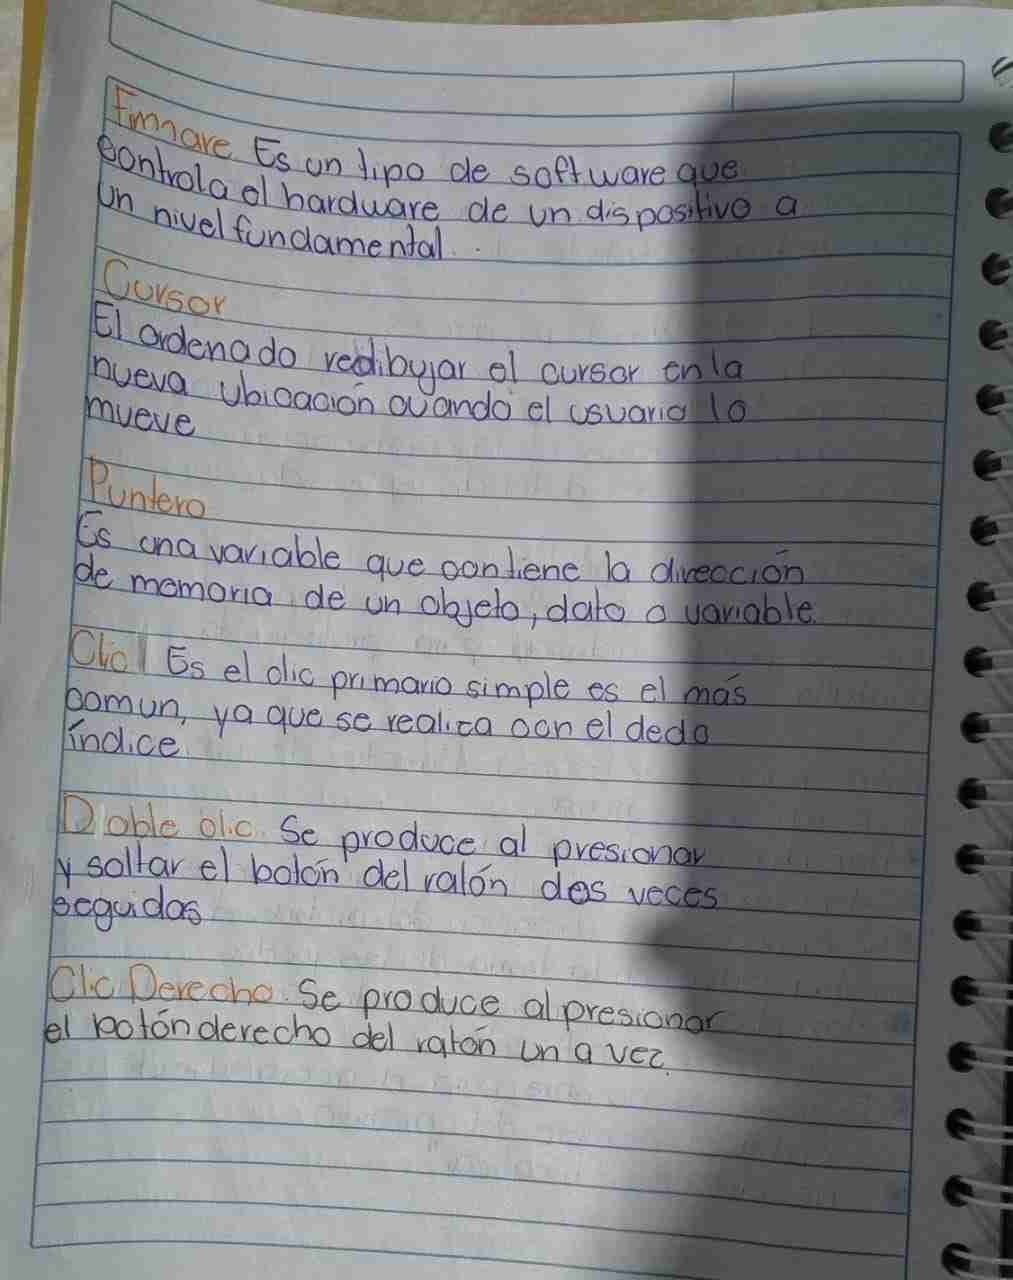 Fimnare Es un tipo de software que
controla el hardware de un dispositivo a
un nivel fundamental.
Cursor
El ordenado redibujar el cursor en la
nueva ubicación cuando el usuario lo
mueve
Puntero
Es una variable que contiene la dirección
de memoria de un objeto, dato o variable.
Clic Es el clic primario simple es el más
comun, ya que se realiza con el dedo
índice
Doble clic. Se produce al presionar
y soltar el botón del ratón dos veces
seguidas
Clic Derecho. Se produce al presionar
el botón derecho del ratón una vez.